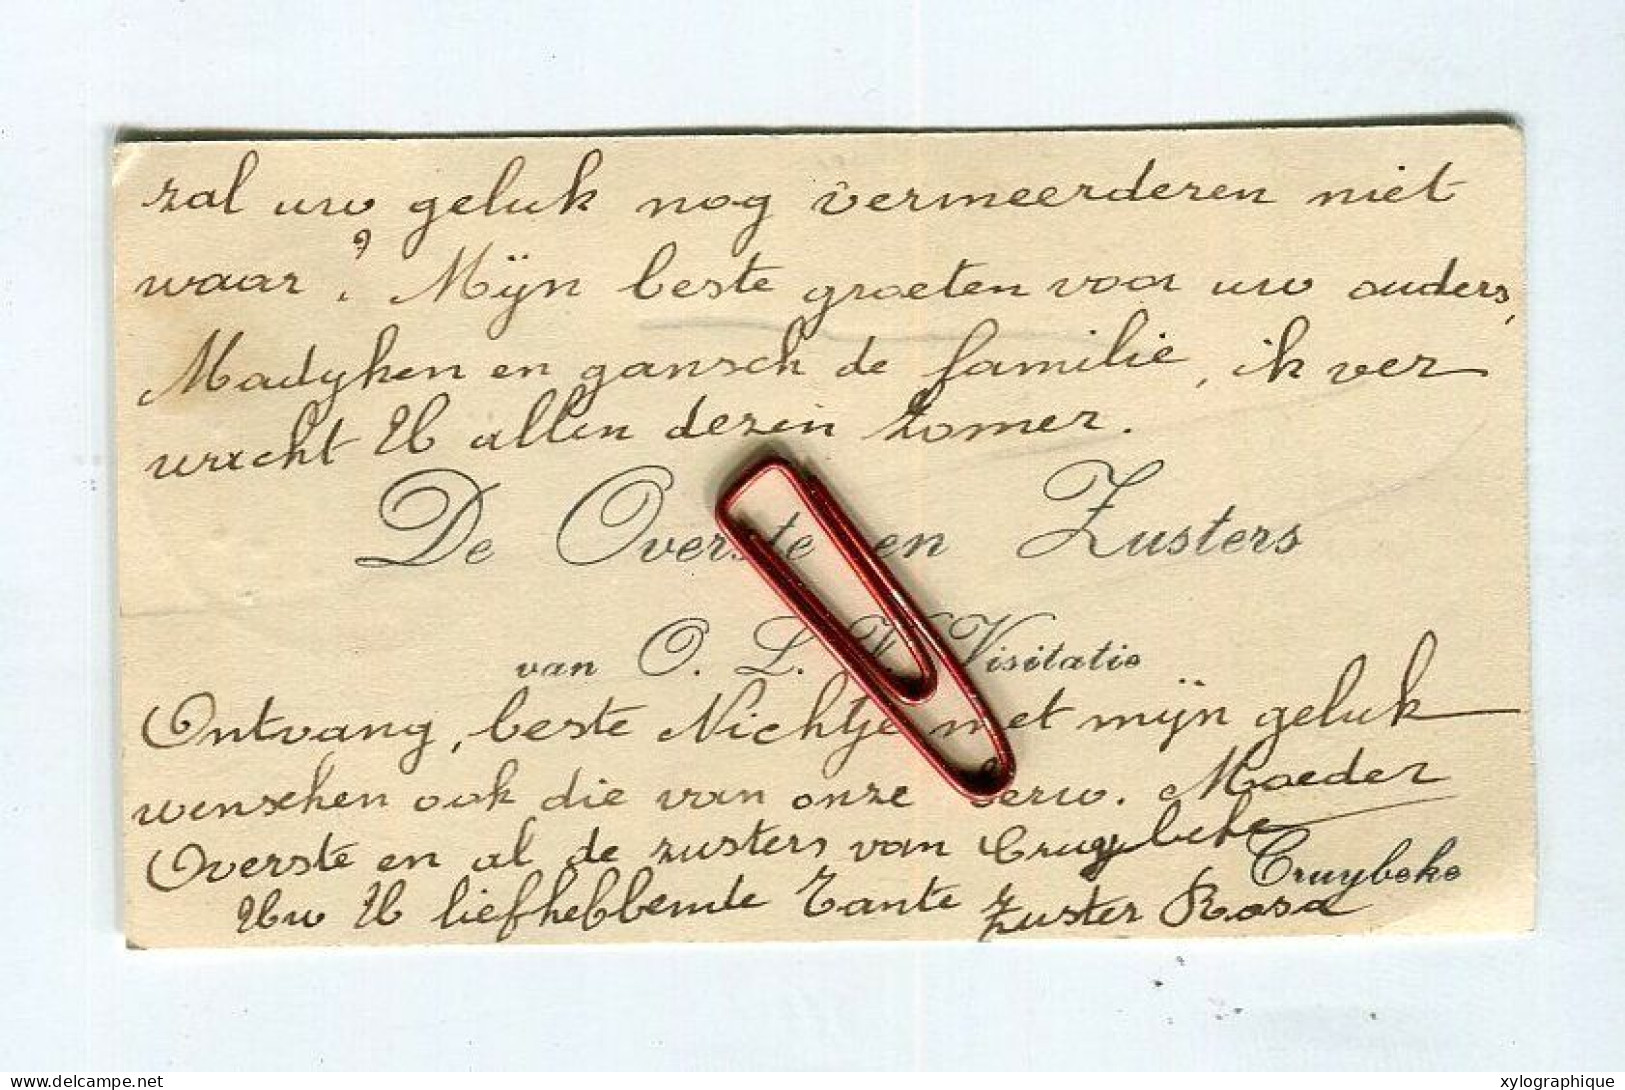 zal uw geluk nog vermeerderen niet
waar? Mijn beste groeten voor uw ouders,
Madyken en gansch de familie, ik ver
wacht U allen dezen zomer.
De Overste en Zusters
van O. L. V. Visitatie
Ontvang, beste Nichtje met mijn geluk
wenschen ook die van onze Eerw. Moeder
Overste en al de zusters van Cruybeke
Cruybeke
Uw U liefhebbende Tante Zuster Rosa
xylographique